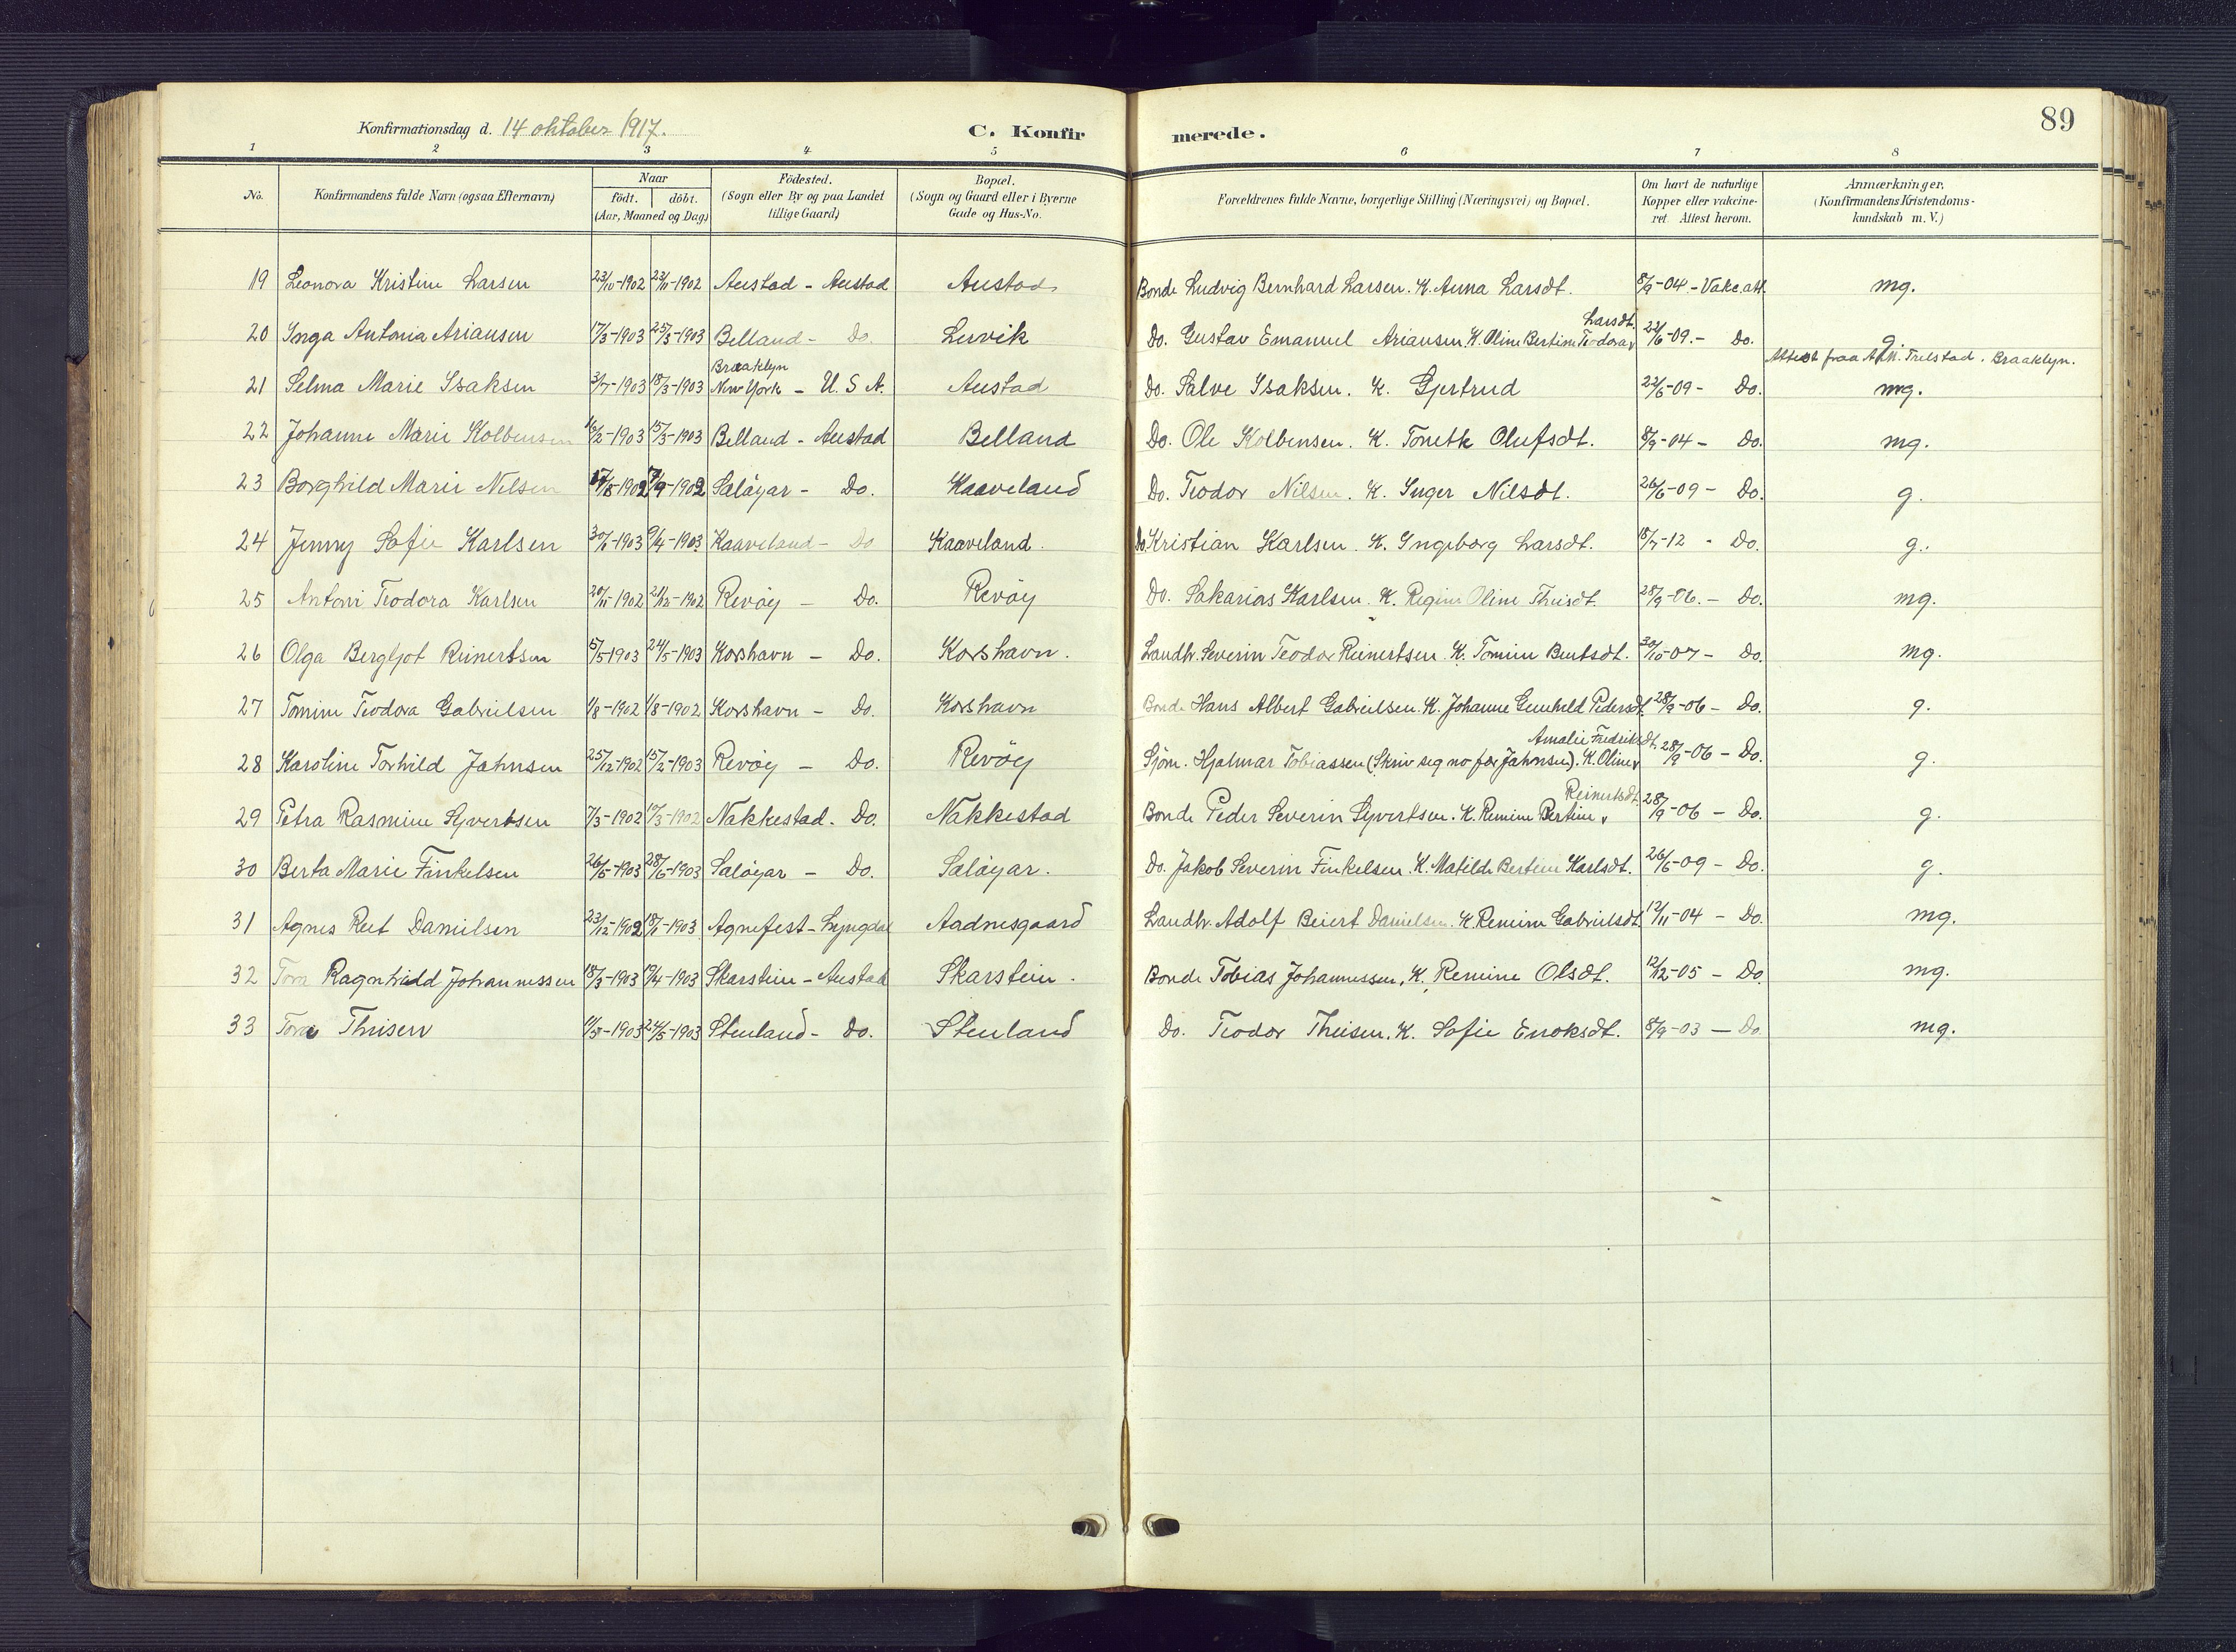 89
Konfirmationsdag d. 14 oktober 1917. C. Konfirmerede.
1 2 3 4 5 6 7 8
No. Konfirmandens fulde Navn (ogsaa Efternavn) Naar födt. döbt. (Aar, Maaned og Dag) Födested. (Sogn eller By og paa Landet tillige Gaard) Bopæl. (Sogn og Gaard eller i Byerne Gade og Hus-No. Forældrenes fulde Navne, borgerlige Stilling (Næringsvei) og Bopæl. Om havt de naturlige Kopper eller vakcineret. Attest herom. Anmærkninger. (Konfirmandens Kristendomskundskab m. V.)
19 Leonora Kristine Larsen 23/10-1902 23/11-1902 Austad - Austad Austad Bonde Ludvig Bernhard Larsen. K. Anna Larsdt. 8/9-04 - Vakc.att. mg.
20 Inga Antonia Ariansen 17/3-1903 Belland - Do. Luvik Do. Gustav Emanuel Ariansen. K. Oline Bertine Teodora Larsdt. 22/6-09. - Do. g.
21 Selma Marie Isaksen Braaklyn New York - U. S. A. Austad Do. Salve Isaksen. K. Gjertrud 22/6-09 - Do. Attest fraa Trelstad. Braaklyn. mg.
22 Johanne Marie Kolbensen 16/2-1903 15/3-1903 Belland - Austad Belland Do. Ole Kolbensen. K. Tonette Olufsdt. 8/9-04 - Do. mg.
23 Borghild Marie Nilsen Saløyar - Do. Kaaveland Do. Teodor Nilsen. K. Inger Nilsdt. 26/6-09 - Do. g.
24 Jenny Sofie Karlsen Kaaveland - Do Kaaveland. Do Kristian Karlsen. K. Ingeborg Larsdt. 18/7-12 - Do. g.
25 Antoni Teodora Karlsen 20/11-1902 21/12-1902 Revøy - Do. Revøy Do. Sakarias Karlsen. K. Regine Oline Theisdt. 28/9-06. - Do. mg.
26 Olga Bergljot Reinertsen 5/5 1903 24/5-1903 Korshavn - Do. Korshavn. Landh. Severin Teodor Reinertsen. K. Tomine Bentsdt. 30/10-07 - Do. mg.
27 Tomine Teodora Gabrielsen Korshavn - Do. Korshavn Bonde Hans Albert Gabrielsen. K. Johanne Gunheld Pedersdt. 28/9-06 - Do. g.
28 Karoline Torhild Jahnsen 25/12-1902 15/2-1903 Revøy - Do. Revøy Sjøm. Hjalmar Tobiassen (Skriv seg no for Jahnsen). K. Oline Amalie Fredriksdt. 28/9-06 - Do. g.
29 Petra Rasmine Syvertsen Nakkestad. Do. Nakkestad Bonde Peder Severin Syvertsen. K. Remine Bertine Reinertsdt. 28/9-06 - Do. g.
30 Berta Marie Finkelsen 26/5-1903 28/6-1903 Saløyar - Do. Saløyar. Do. Jakob Severin Finkelsen. K. Matilde Bertine Karlsdt. 26/6-09 - Do. g.
31 Agnes Rut Danielsen 23/12-1902 18/1-1903 Agnefest - Lyngdal Aadnesgaard Landh. Adolf Beiert Danielsen K. Remine Gabrielsdt. 12/11-04 - Do. mg.
32 Tora Ragnhild Johannessen 18/3-1903 19/4-1903 Skarstein - Austad Skarstein. Bonde Tobias Johannessen, K. Remine Olsdt. 12/12-05 - Do. mg.
33 Tora Theisen 24/5-1903 Stenland - Do. Stenland Do. Teodor Theisen. K. Sofie Enoksdt. 8/9-03 - Do. mg.